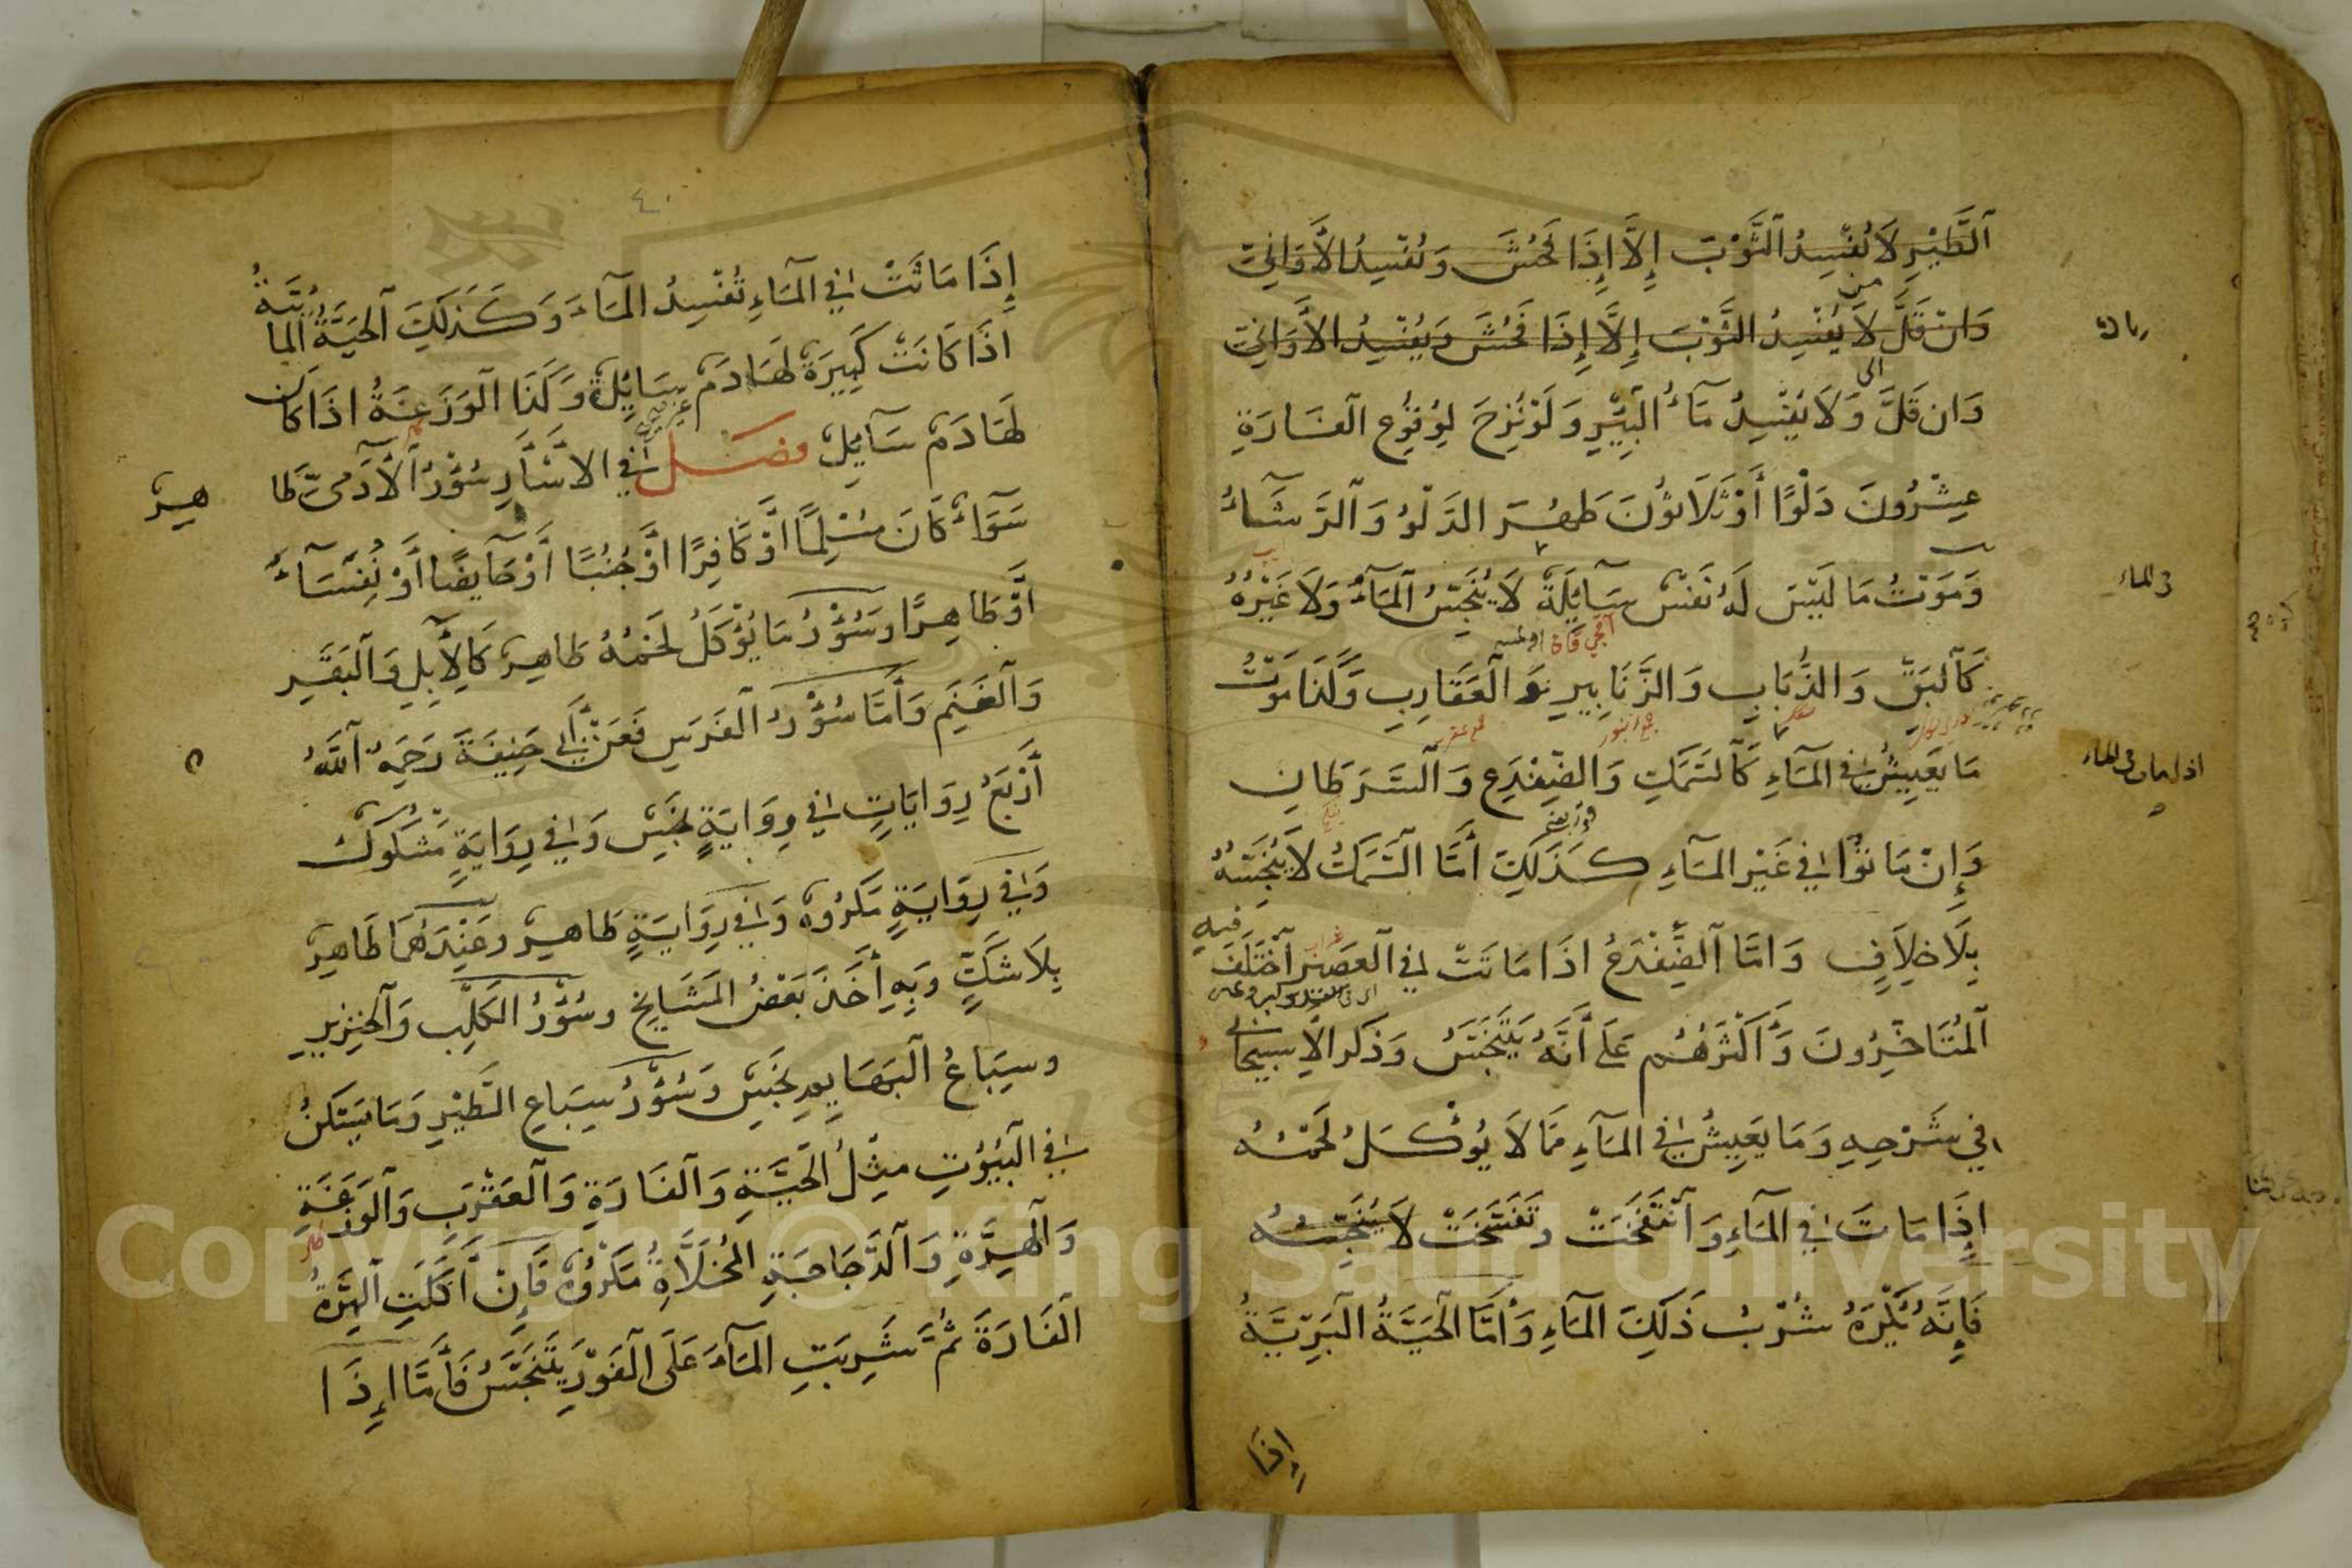 اَلطَّيْرِ لَا يُفْسِدُ الثَّوْبَ إِلَّا إِذَا فَحُشَ وَيُفْسِدُ الْأَوَانِيَ
وَإِنْ قَلَّ لَا يُفْسِدُ الثَّوْبَ إِلَّا إِذَا فَحُشَ وَيُفْسِدُ الْأَوَانِيَ
من
الى
وَإِنْ قَلَّ وَلَا يُفْسِدُ مَاءُ الْبِئْرِ وَلَوْ نُزِحَ لِوُقُوعِ الْفَارَةِ
عِشْرُونَ دَلْوًا أَوْ ثَلَاثُونَ طَهُرَ الدَّلْوُ وَالرَّشَاءُ
وَمَوْتُ مَا لَيْسَ لَهُ نَفْسٌ سَآئِلَةٌ لَا يُنَجِّسُ الْمَآءَ وَلَا غَيْرَهُ
فى الماء
كَالْبَقِّ وَالذُّبَابِ وَالزَّنَابِيرِ وَالْعَقَارِبِ وَكَذَا مَوْتُ
مَا يَعِيشُ فِي الْمَآءِ كَالسَّمَكِ وَالضِّفْدَعِ وَالسَّرَطَانِ
اذا مات فى الماء
وَإِنْ مَاتُوا فِي غَيْرِ الْمَآءِ كَذَلِكَ أَمَّا السَّمَكُ لَا يُنَجِّسُهُ
بِلَا خِلَافٍ وَامَّا الضِّفْدَعُ اذَا مَاتَتْ فِي الْعَصِيرِ اَخْتَلَفَ
فيه
اَلْمُتَاخِّرُونَ وَأَكْثَرُهُمْ عَلَى أَنَّهُ يَتَنَجَّسُ وَذَكَرَ الْإِسْبِيجَابِي
فِي شَرْحِهِ وَمَا يَعِيشُ فِي الْمَآءِ مِمَّا لَا يُؤْكَلُ لَحْمُهُ
إِذَا مَاتَ فِي الْمَآءِ وَانْتَفَخَتْ وَتَفَسَّخَتْ لَا يُنَجِّسُهُ
فَإِنَّهُ يُكْرَهُ شُرْبُ ذَلِكَ الْمَآءِ وَأَمَّا الْحَيَّةُ الْبَرِّيَّةُ
إذا
٤٠
إِذَا مَاتَتْ فِي الْمَآءِ تُفْسِدُ الْمَآءَ وَكَذَلِكَ الْحَيَّةُ الْمَائِيَّةُ
اذَا كَانَتْ كَبِيرَةً لَهَا دَمٌ سَايِلَةٌ وَكَذَا الْوَزَغَةُ اذَا كَانَ
لَهَا دَمٌ سَآيِلٌ فصل فِي الْاسْآرِ سُؤْرُ الْآدَمِيِّ طَا
هِرٌ
سَوَآءٌ كَانَ مُسْلِمًا اَوْ كَافِرًا اَوْ جُنُبًا أَوْ حَايِضًا أَوْ نُفَسَآءُ
اَوْ طَاهِرًا وَسُؤْرُ مَا يُؤْكَلُ لَحْمُهُ طَاهِرٌ كَالْإِبِلِ وَالْبَقَرِ
وَالْغَنَمِ وَأَمَّا سُؤْرُ الْفَرَسِ فَعَنْ أَبِي حَنِيفَةَ رَحِمَهُ اللّٰهُ
أَرْبَعُ رِوَايَاتٍ فِي رِوَايَةٍ نَجِسٌ وَفِي رِوَايَةٍ مَشْكُوكٌ
وَفِي رِوَايَةٍ مَكْرُوهٌ وَفِي رِوَايَةٍ طَاهِرٌ وَعِنْدَهُمَا طَاهِرٌ
بِلَا شَكٍّ وَبِهِ أَخَذَ بَعْضُ الْمَشَايِخِ وَسُؤْرُ الْكَلْبِ وَالْخِنْزِيرِ
وَسِبَاعُ الْبَهَايِمِ نَجِسٌ وَسُؤْرُ سِبَاعِ الطَّيْرِ وَمَا يَسْكُنُ
فِي الْبُيُوتِ مِثْلُ الْحَيَّةِ وَالْفَارَةِ وَالْعَقْرَبِ وَالْوَزَغَةِ
وَالْهِرَّةِ وَالدَّجَاجَةِ الْمُخَلَّاةِ مَكْرُوهٌ فَإِنْ أَكَلَتِ الْهِرَّةُ
الْفَارَةَ ثُمَّ شَرِبَتِ الْمَآءَ عَلَى الْفَوْرِ يَتَنَجَّسُ فَأَمَّا إِذَا
Copyright © King Saud University